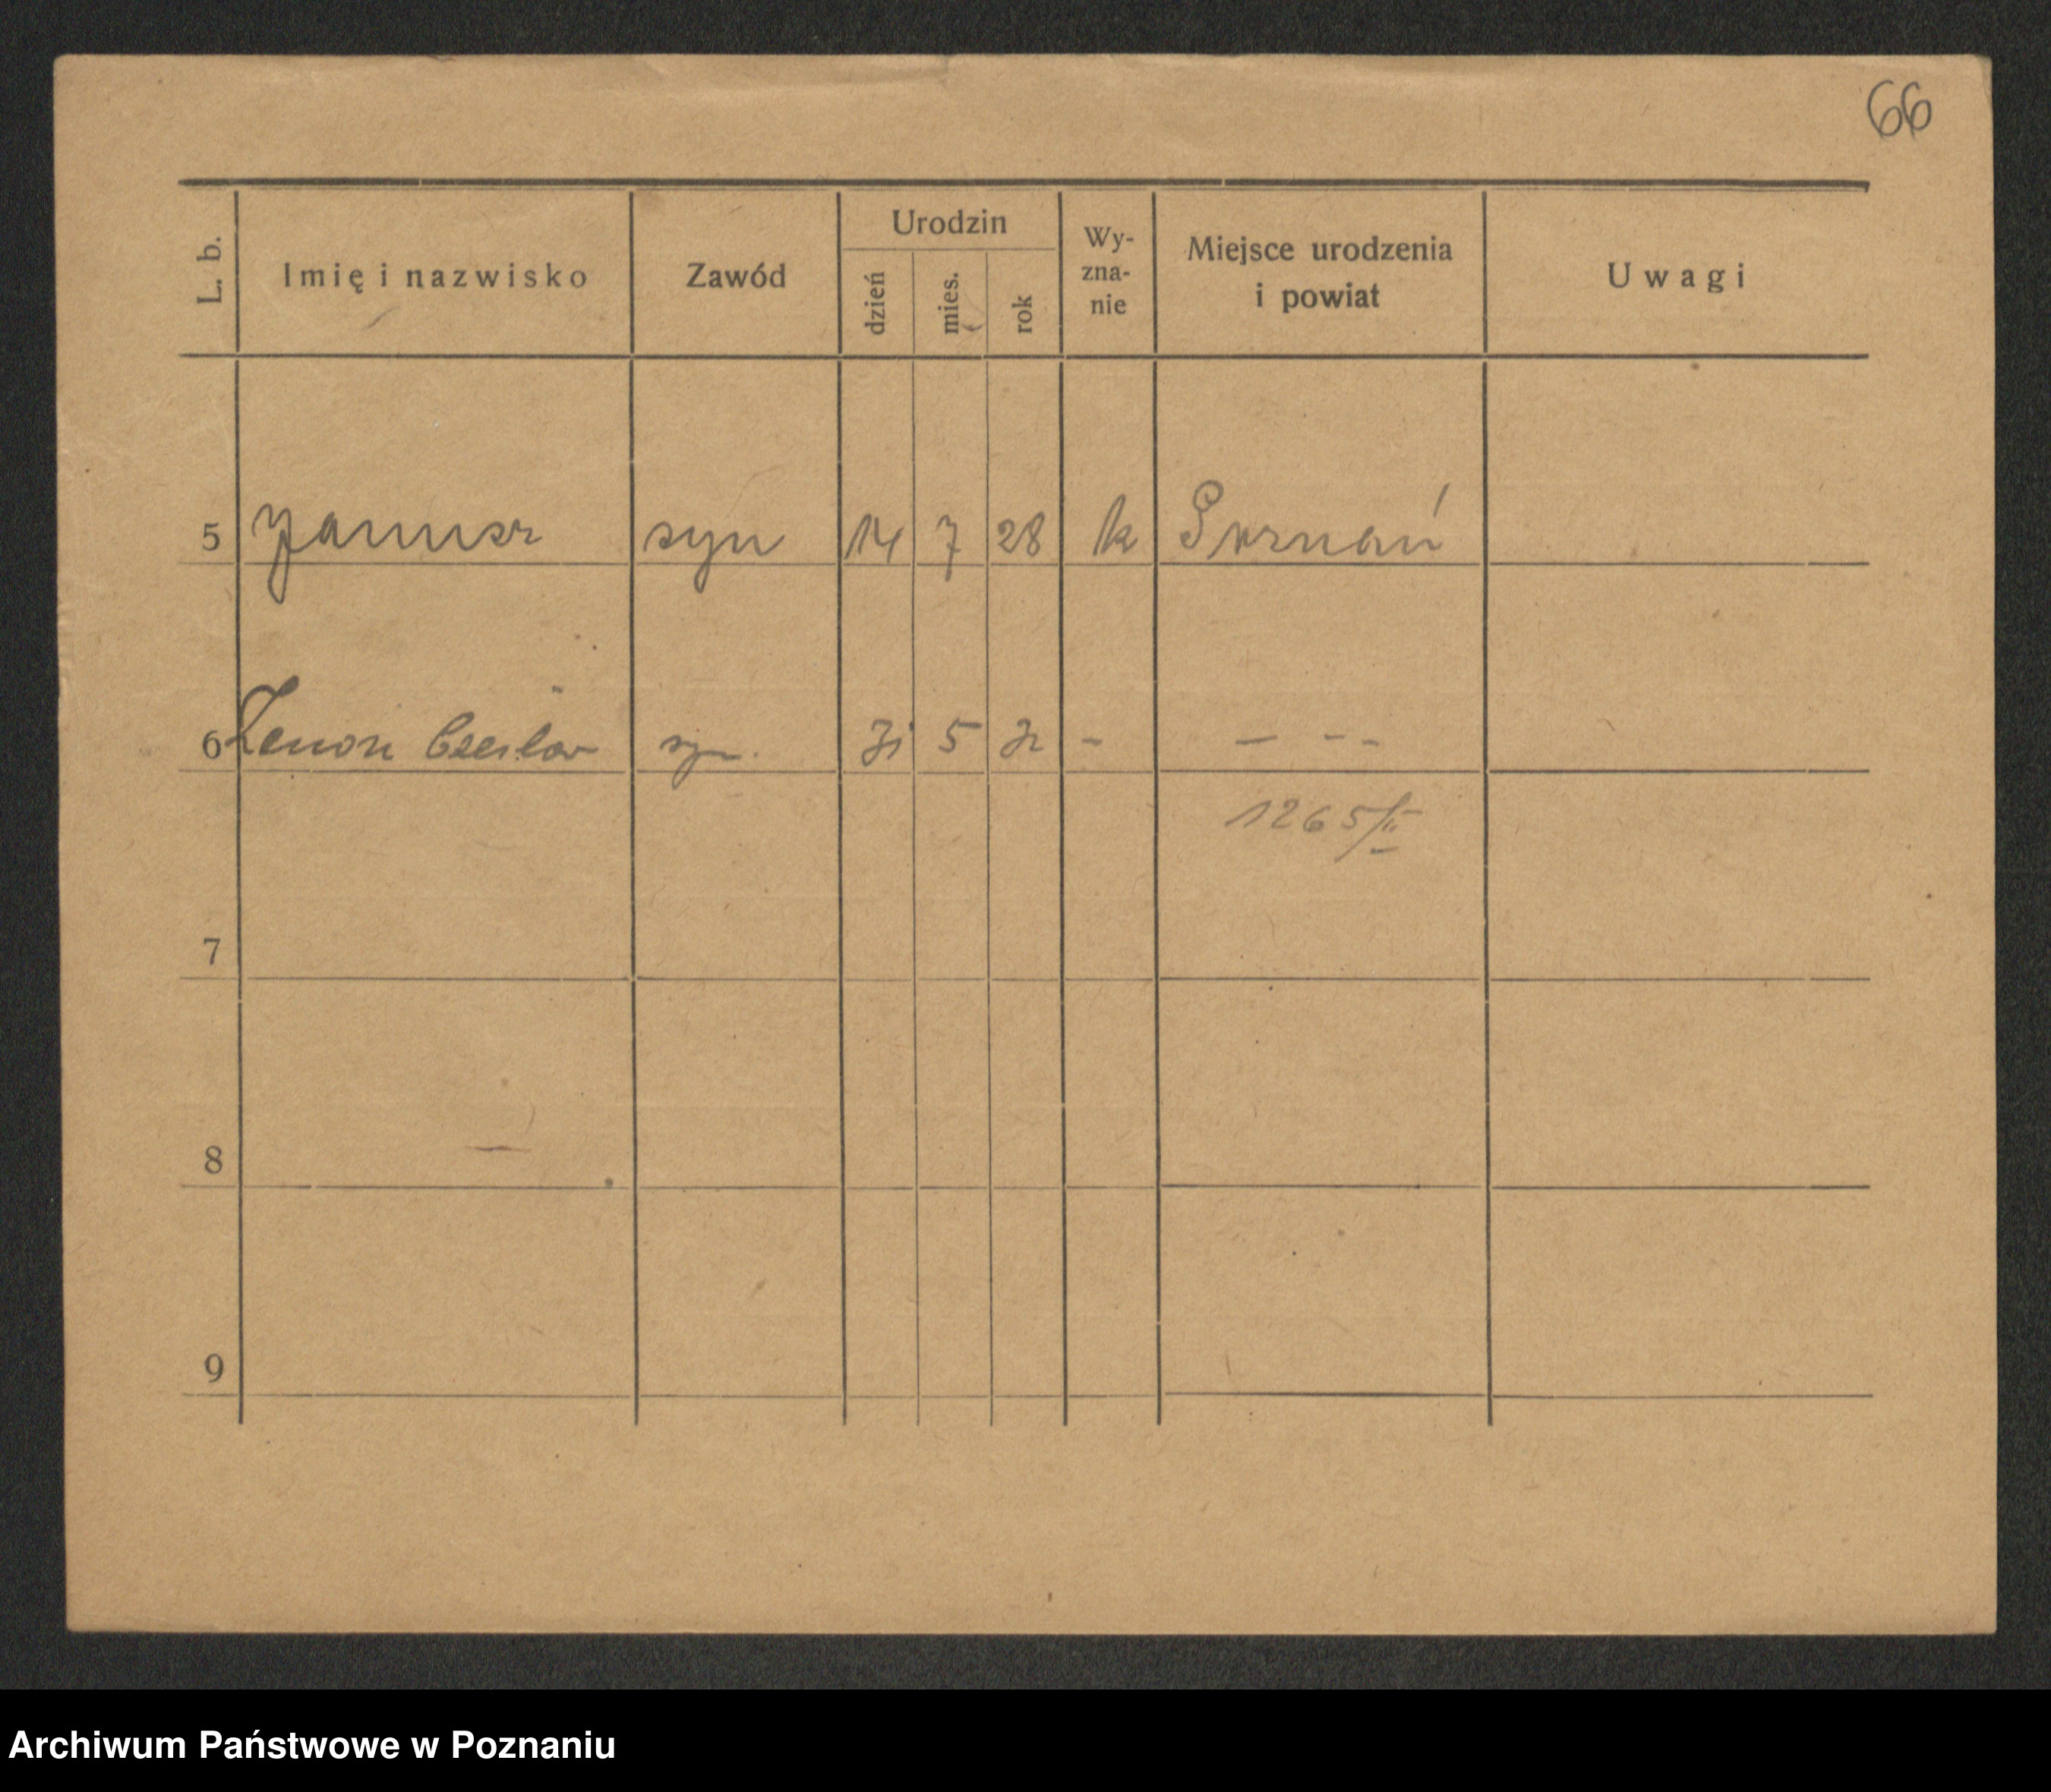 66
L. b. Imię i nazwisko Zawód Urodzin dzień mies. rok Wy-zna-nie Miejsce urodzenia i powiat Uwagi
5 Janusz syn 14 7 28 k Poznań
6 Zenon Czesław syn 5 - - - -
1265/II
7
8
9
Archiwum Państwowe w Poznaniu